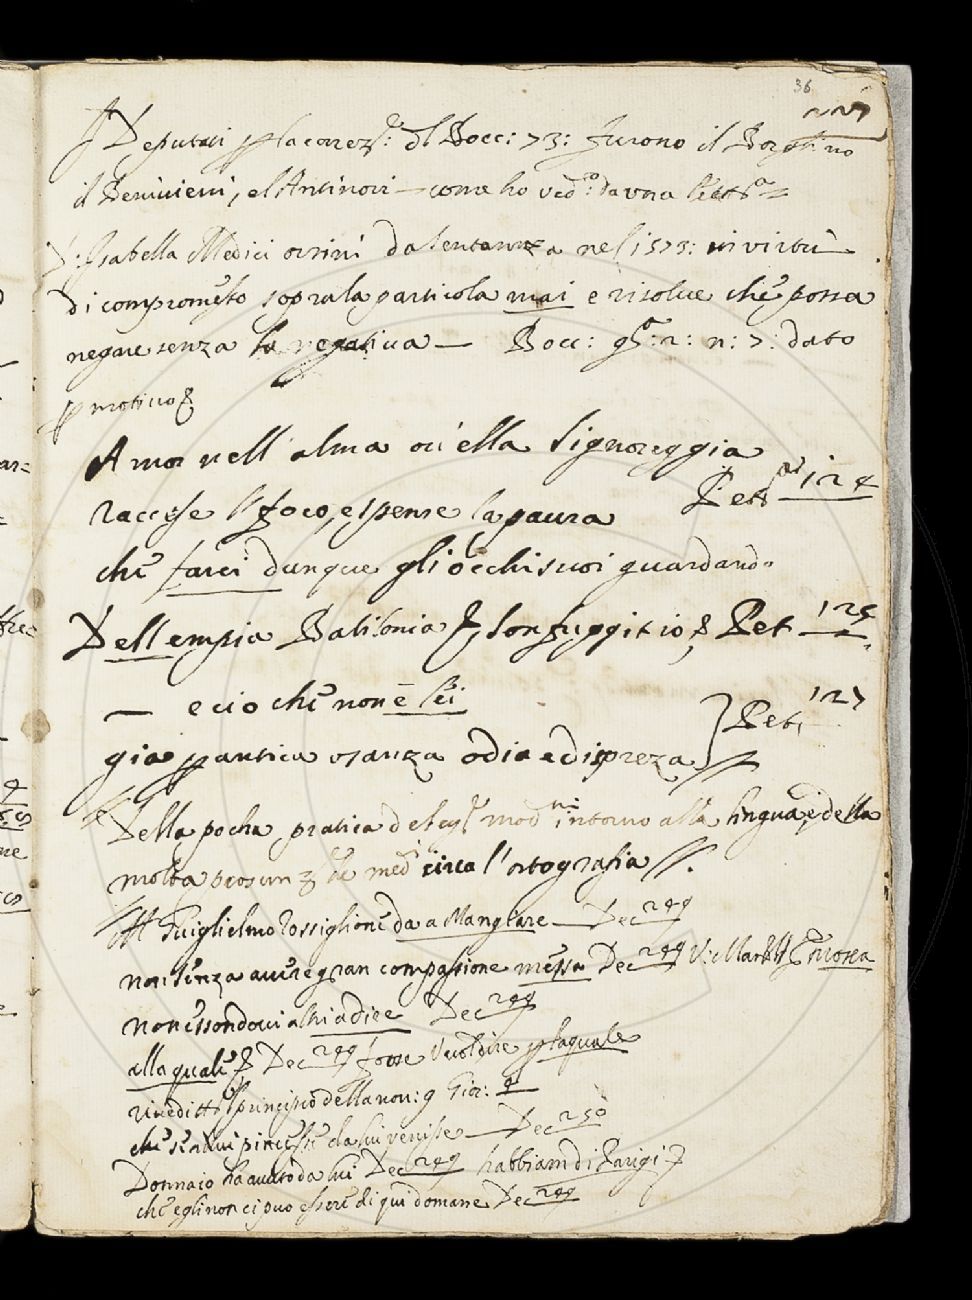 36
227
I Deputati pp la correz.e: dl Bocc: 73: furono il Borghino
il Benivieni, el Antinori — come ho ved.o: da una lett.a
D: Isabella Medici orsini da sentenza nel 1573: in virtù
di compromesso sopra la particola mai e risolve che possa
negare senza la negativa — Bocc: g.a: 2: n: 7: dato
pp motivo &
Amor nell' alma ov' ella Signoreggia
raccese l' foco, e spense la paura
Petr 124
che farei dunque gli occhi suoi guardando
Dell empia Babilonia & son fuggito io, & Pet 125
— e cio che non è lei
Pet, 127
gia pp antica usanza odia e dispreza
Della pocha pratica del mod.ni intorno alla lingua, e della
molta circa l' ortografia
Guiglielmo rossiglione da a Mangiare — Dec 249
non senza avere gran compassione messa Dec 249 V: Mosca
non essendovi altri a dire Dec 249
alla quale & Dec 249 forse vuol dire pp la quale
vineditti principio della nov: 9 Gior: 4
che se di lui pincesse da lui venisse — Dec 250
Donnaio ha auuto da lui Dec 249 habbiam di Parigi &
che egli non ci puo essere di qui domane Dec 249